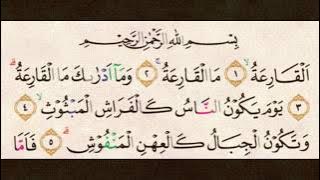 بِسْمِ اللهِ الرَّحْمٰنِ الرَّحِيْمِ
اَلْقَارِعَةُۙ ١ مَا الْقَارِعَةُۚ ٢ وَمَآ اَدْرٰىكَ مَا الْقَارِعَةُۗ
٣ يَوْمَ يَكُوْنُ النَّاسُ كَالْفَرَاشِ الْمَبْثُوْثِۙ ٤
وَتَكُوْنُ الْجِبَالُ كَالْعِهْنِ الْمَنْفُوْشِۗ ٥ فَاَمَّا